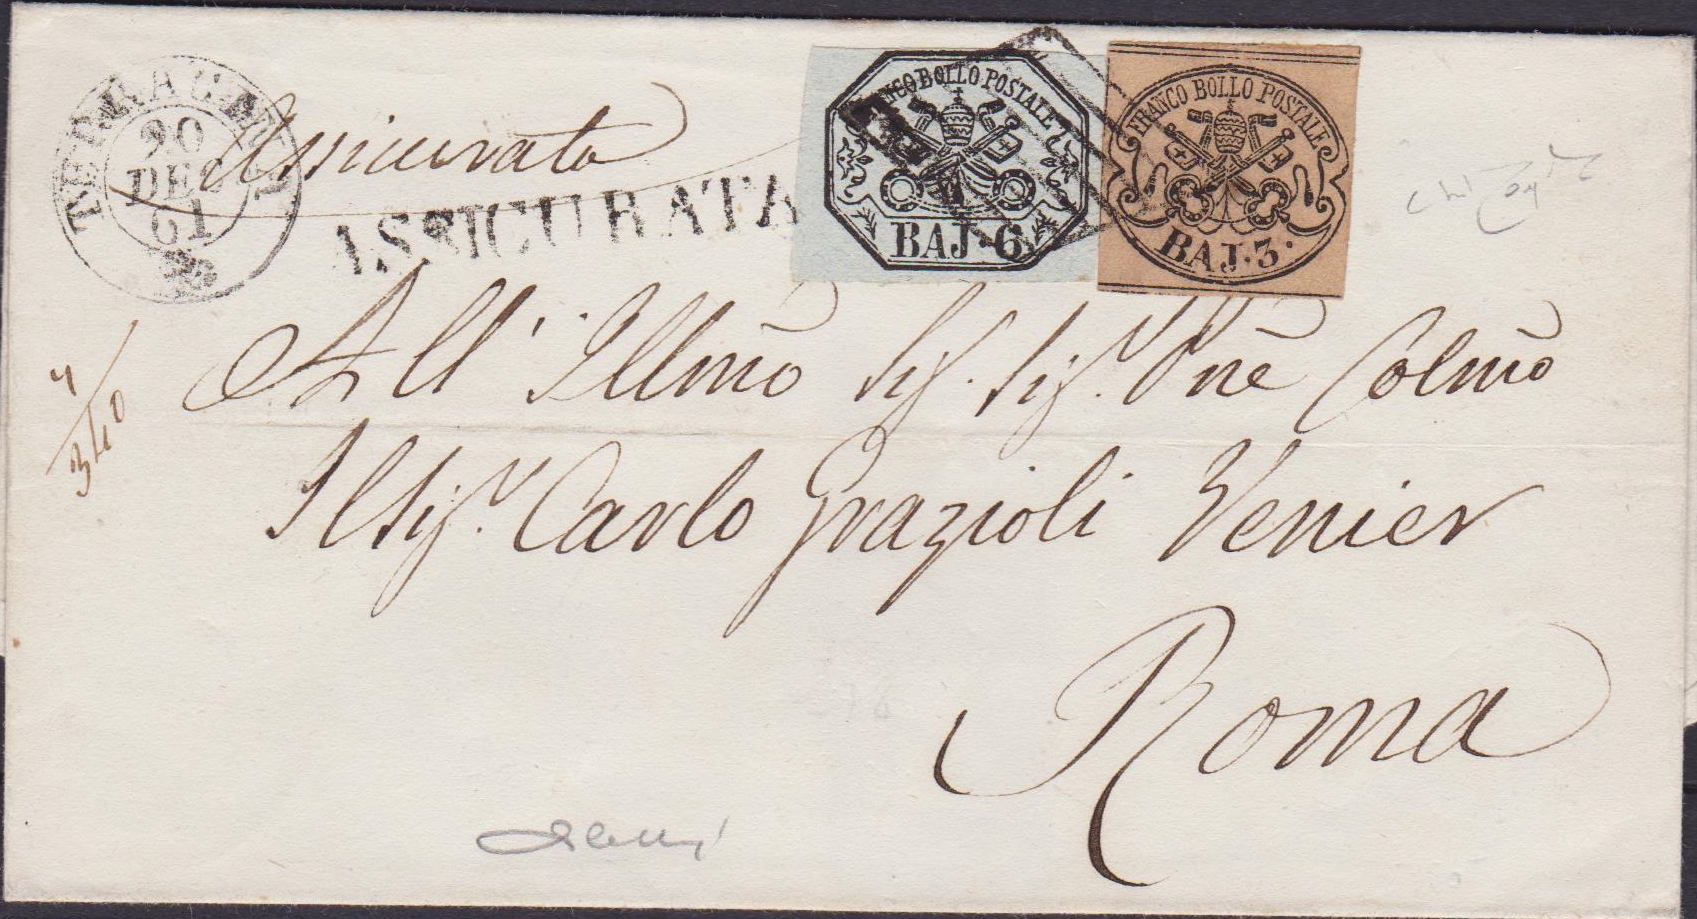 TERRACINA
20
DEC
61
Assicurata
ASSICURATA
FRANCO BOLLO POSTALE
BAJ. 6
FRANCO BOLLO POSTALE
BAJ. 3.
4
340
All' Illmõ Sig. Sigr. Pnẽ Colmõ
Il Sigr. Carlo Grazioli Venier
Roma